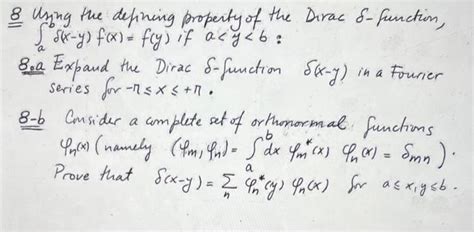 8 Using the defining property of the Dirac δ-function,
∫_a^b δ(x-y) f(x) = f(y) if a < y < b :
8.a Expand the Dirac δ-function δ(x-y) in a Fourier
series for -π ≤ x ≤ +π .
8-b Consider a complete set of orthonormal functions
φ_n(x) (namely (φ_m, φ_n) = ∫_a^b dx φ_m^*(x) φ_n(x) = δ_mn ) .
Prove that δ(x-y) = Σ_n φ_n^*(y) φ_n(x) for a ≤ x, y ≤ b .